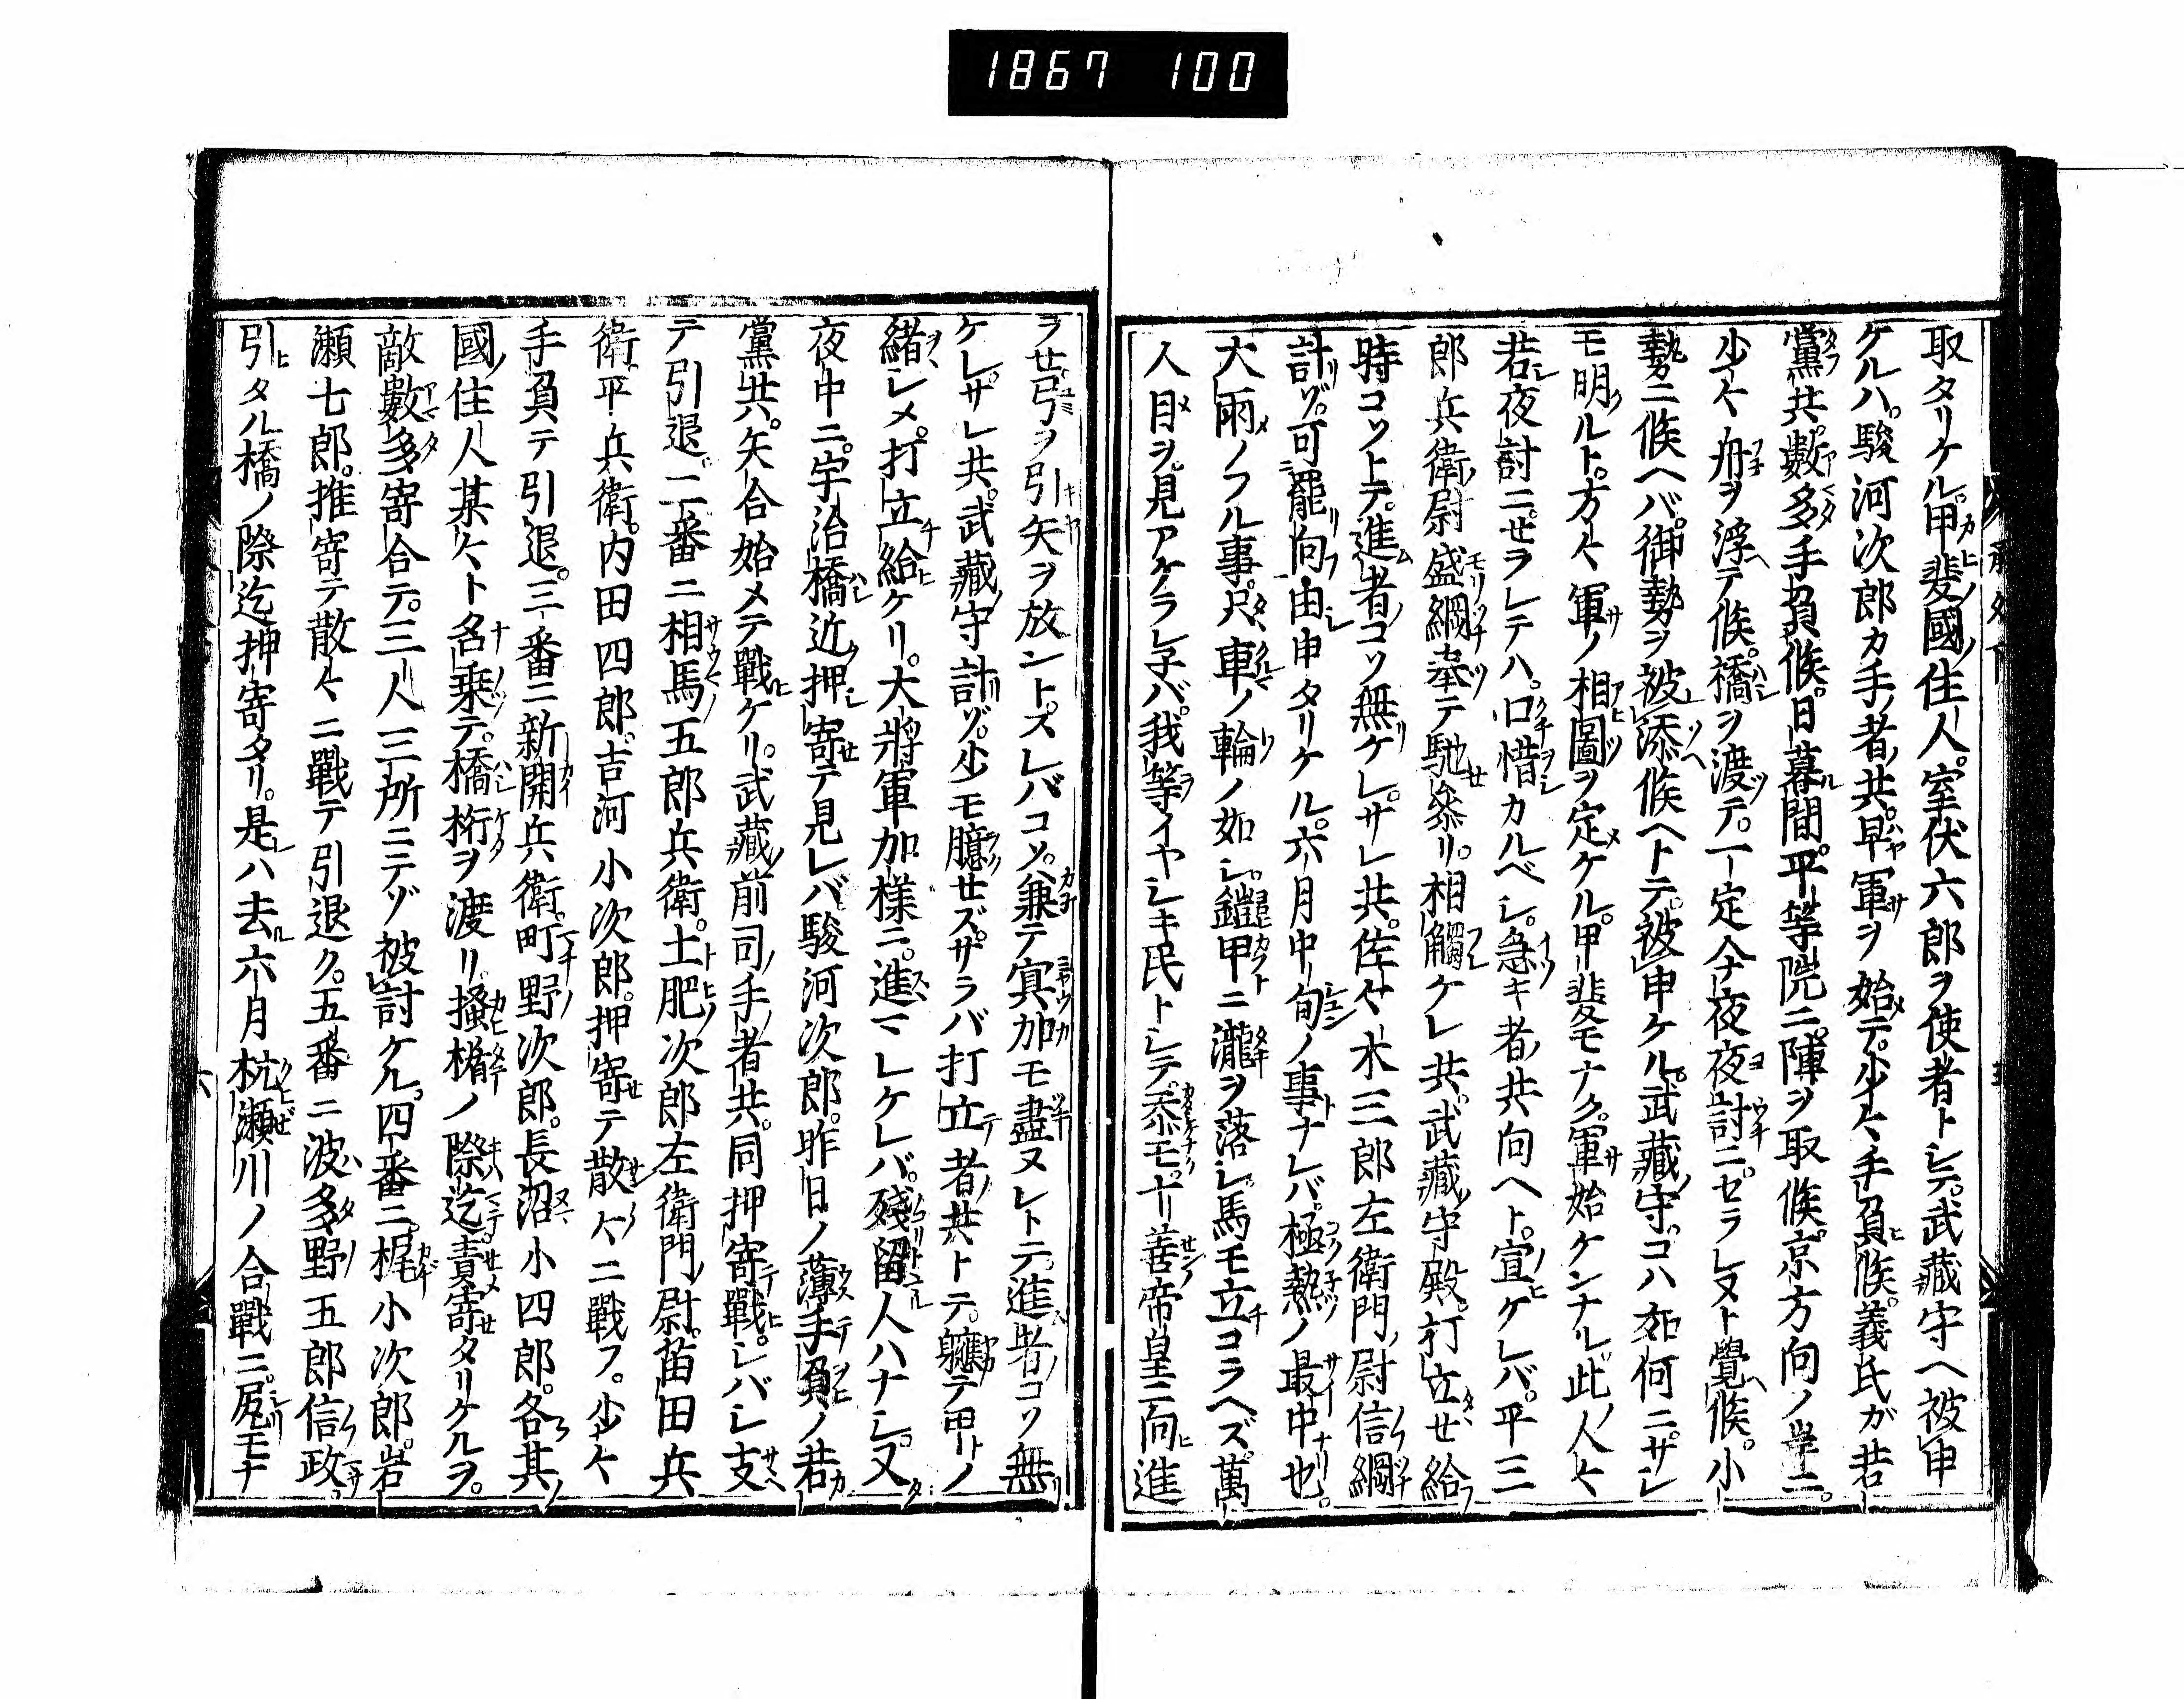 1867 100
取タリケル。甲斐國ノ住人。室伏六郎ヲ使者トシテ。武藏守ヘ被申
ケルハ。駿河次郎カ手ノ者共。早軍ヲ始メテ。少々手負候。義氏ガ若
黨共。數多手負候。日暮ル間。平等院ニ陣ヲ取候。京方向ノ岸ニ。
少々舟ヲ浮ヘテ候。橋ヲ渡ツテ。一定今夜夜討ニセラレヌト覺ヘ候。小
勢ニ候ヘバ。御勢ヲ被添候ヘトテ。被申ケル。武藏守。コハ如何ニ。サシ
モ明ルト。方々軍ノ相圖ヲ定メケル。甲斐モナク。軍始ケンナル。此ノ人々
若シ夜討ニセラレテハ。口惜カルベシ。急キ者ノ共向ヘト。宣ヒケレバ。平三
郎兵衛ノ尉盛綱奉ツテ馳セ參リ。相觸ケレ共。武藏ノ守殿。打立セ給フ
時コソトテ。進ム者コソ無リケレ。サレ共。佐々木三郎左衛門ノ尉信綱
計リゾ。可罷リ向フ由シ申タリケル。六月中旬ノ事ナレバ。極熱ノ最中也。
大雨ノフル事。只車ノ輪ノ如シ。鎧甲ニ瀧ヲ落シ。馬モ立コラヘズ。萬
人目ヲ。見アケラレ子バ。我等イヤシキ民トシテ。忝モ。十善帝皇ニ向ヒ進
ラせ。弓ヲ引矢ヲ放ントスレバコソ。兼テ冥加モ盡ヌレトテ。進ム者コソ無リ
ケレ。サレ共。武藏ノ守計リゾ。少モ臆せズ。ザラバ打立テ者ノ共トテ。軈テ甲トノ
緒シメ。打立チ給ヒケリ。大將軍加様ニ。進マレケレバ。殘留ル人ハナシ。又タ
夜中ニ。宇治橋近ク押シ寄セテ見レバ。駿河次郎。昨日ノ薄手負ノ若
黨共。矢合始メテ戰ヒケリ。武藏ノ前司ノ手ノ者共。同押寄テ戰ヒ。シバシ支ヘ
テ引退ク。二番ニ相馬ノ五郎兵衛。土肥ノ次郎左衛門ノ尉。苗田兵
衛。平兵衛。内田四郎。吉河小次郎。押寄セテ散々ニ戰フ。少々
手負テ引退。三番ニ新開兵衛。町野ノ次郎。長沼小四郎。各其ノ
國ノ住人某々ト名乗テ。橋桁ヲ渡リ。搔楯ノ際迄責寄せタリケルヲ。
敵數多寄合テ。三人三所ニテゾ被討ケル。四番ニ梶小次郎。岩
瀬七郎。推寄テ散々ニ戰テ引退ク。五番ニ波多野五郎信政。
引ヒタル橋ノ際迄押寄タリ。是レハ去ル六月杭瀬川ノ合戰ニ。尻モナ
六